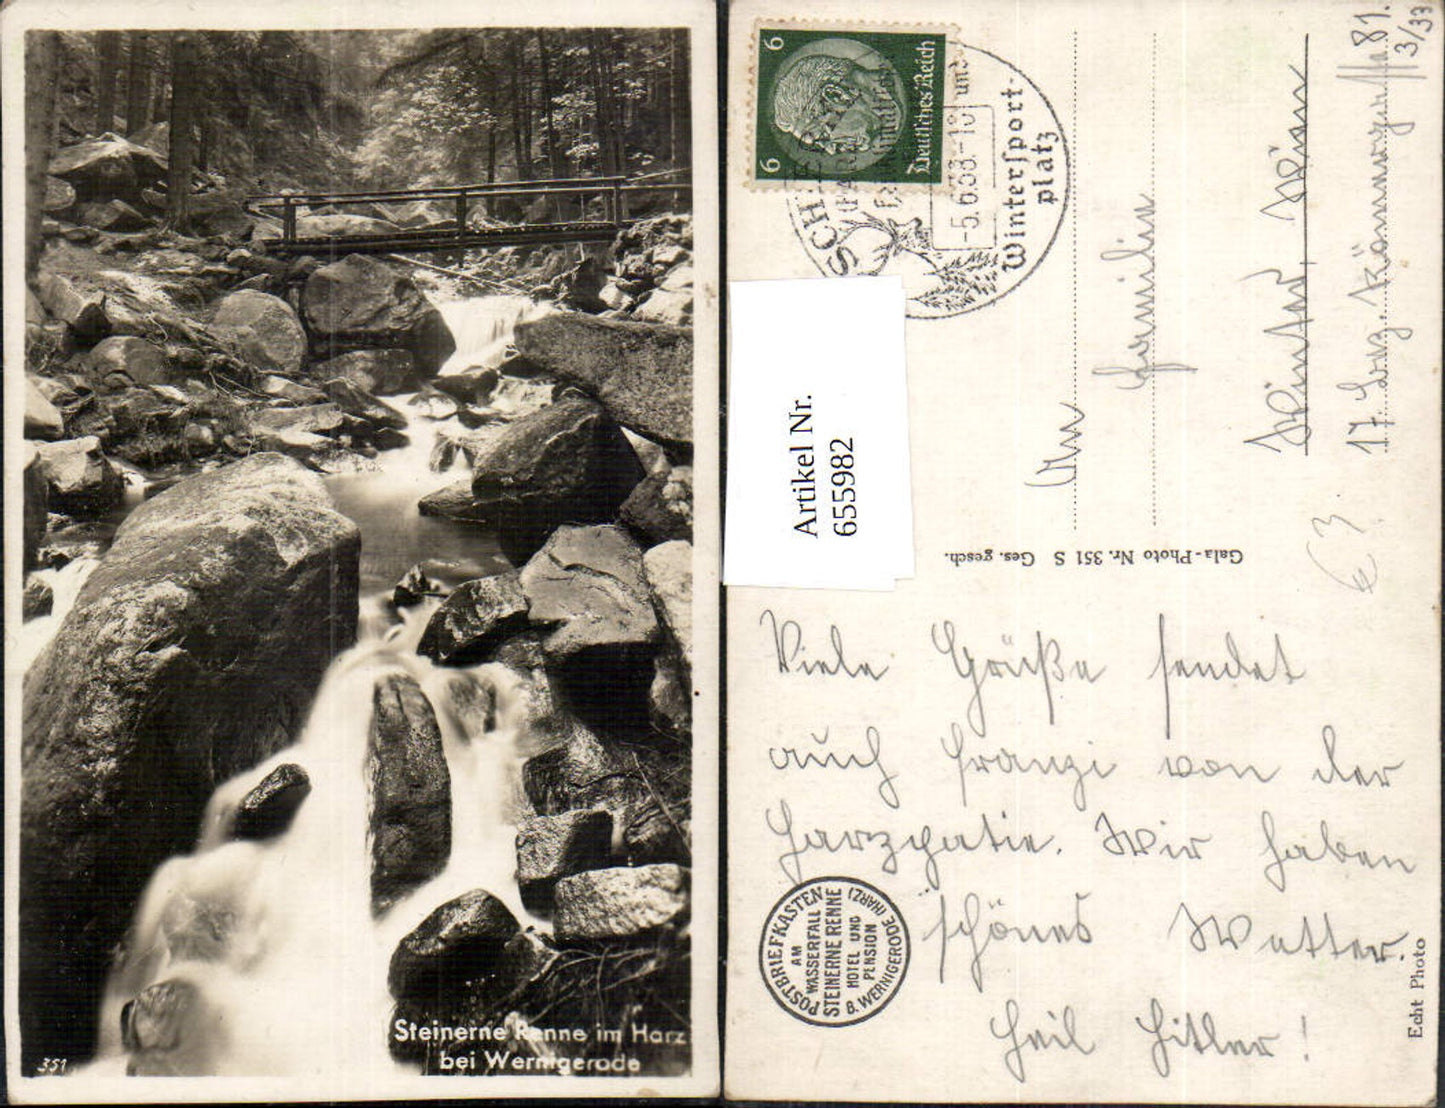 Steinerne Renne im Harz
bei Wernigerode
351
6 6
Deutsches Reich
-5.6.38-18
und
Wintersport-
platz
SCH
Artikel Nr.
655982
An
Familie
Wien
81.
3/33
€ 3
Gala-Photo Nr. 351 S Ges. gesch.
Viele Grüße sendet
auch Franzi von der
Harzpatie. Wir haben
schönes Wetter.
Heil Hitler!
POSTBRIEFKASTEN
AM
WASSERFALL
STEINERNE RENNE
HOTEL UND
PENSION
B. WERNIGERODE (HARZ)
Echt Photo